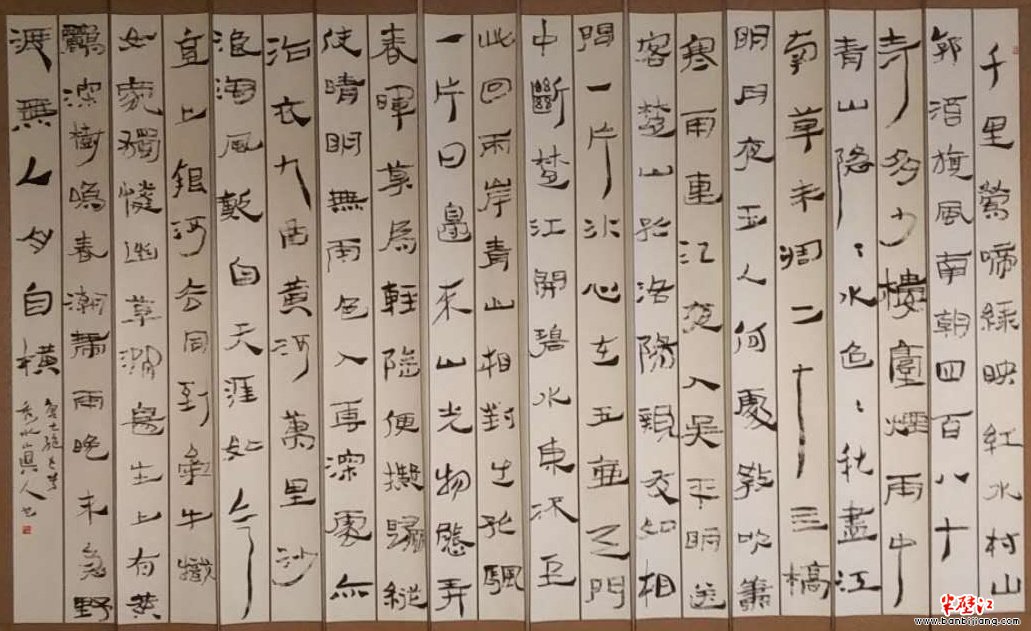 千里鶯啼綠映紅水村山
郭酒旗風南朝四百八十
寺多少樓臺煙雨中
青山隱、水色、秋盡江
南草未凋二十三橋
明月夜玉人何處教吹簫
寒雨連江夜入吳平明送
客楚山孤洛陽親友如相
問一片冰心在玉壺天門
中斷楚江開碧水東流至
此回兩岸青山相對出孤帆
一片日邊來山光物態弄
春暉莫為輕陰便擬歸縱
使晴明無雨色入雲深處亦
沾衣九曲黃河萬里沙
浪淘風簸自天涯如今
直上銀河去同到牽牛織
女家獨憐幽草澗邊生上有黃
鸝深樹鳴春潮帶雨晚來急野
渡無人舟自橫
半壁江
www.banbijiang.com